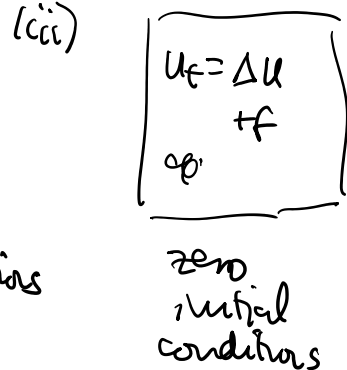 (iii)
u_t = Δu
+f
zero
initial
conditions